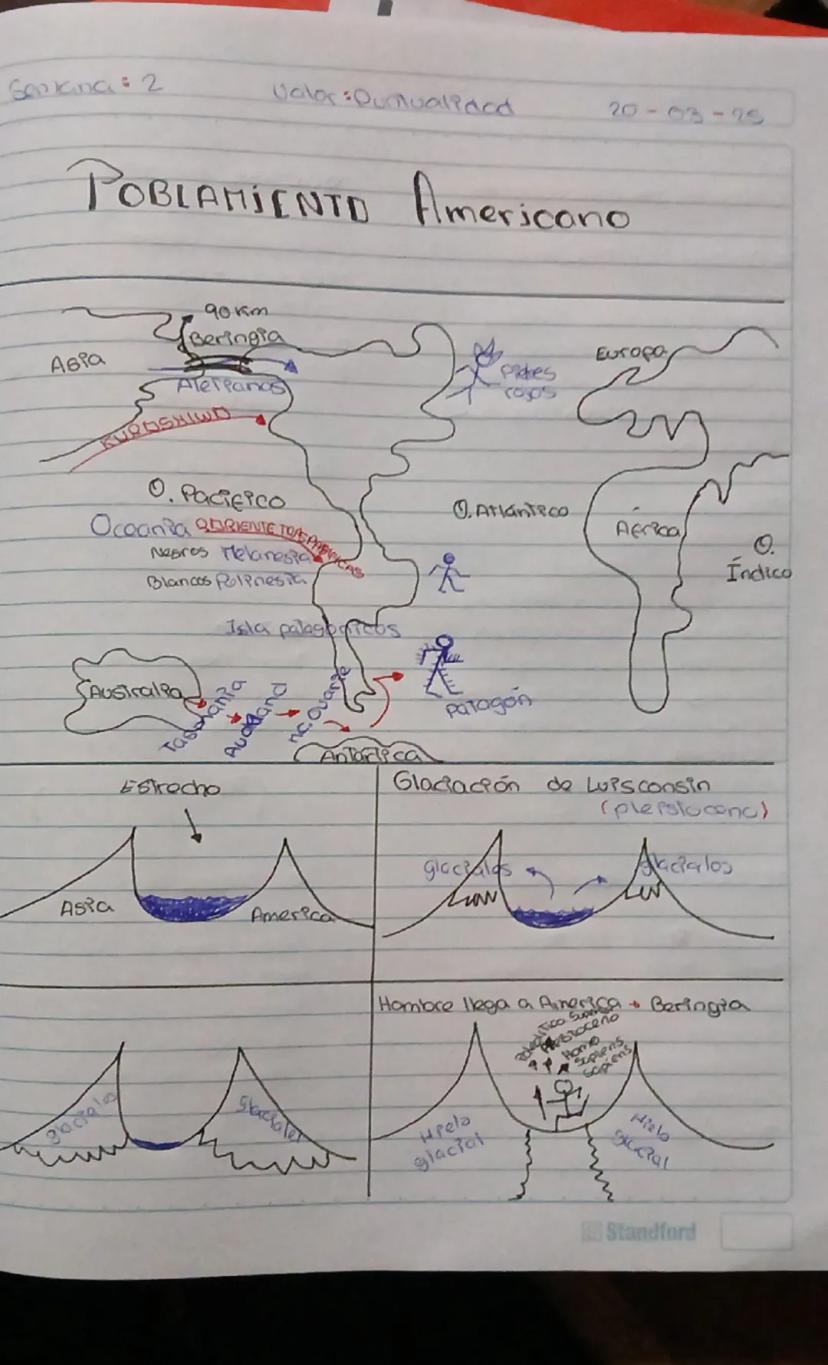 Semana: 2 Valor: Puntualidad 20-03-25
POBLAMIENTO Americano
90 Km
Beringia
Asia
Aleteanos
KUROSHIWO
Pieles
rojos
Europa
O. Pacífico
O. Atlántico
África
O.
Índico
Oceania CORRIENTE TORESPACÍFICAS
Negros Melanesia
Blancos Polinesia
Isla patagonicos
Australia
Tasmania
Auckland
Mc. Quarie
Antartica
Patagón
Estrecho
Asia
America
Glaciación de Wisconsin
(pleistoceno)
glaciales
glaciales
glaciales
glaciales
Hombre llega a America → Beringia
Pleistoceno
Homo
Sapiens
Sapiens
Hielo
glacial
Hielo
glacial
Standford